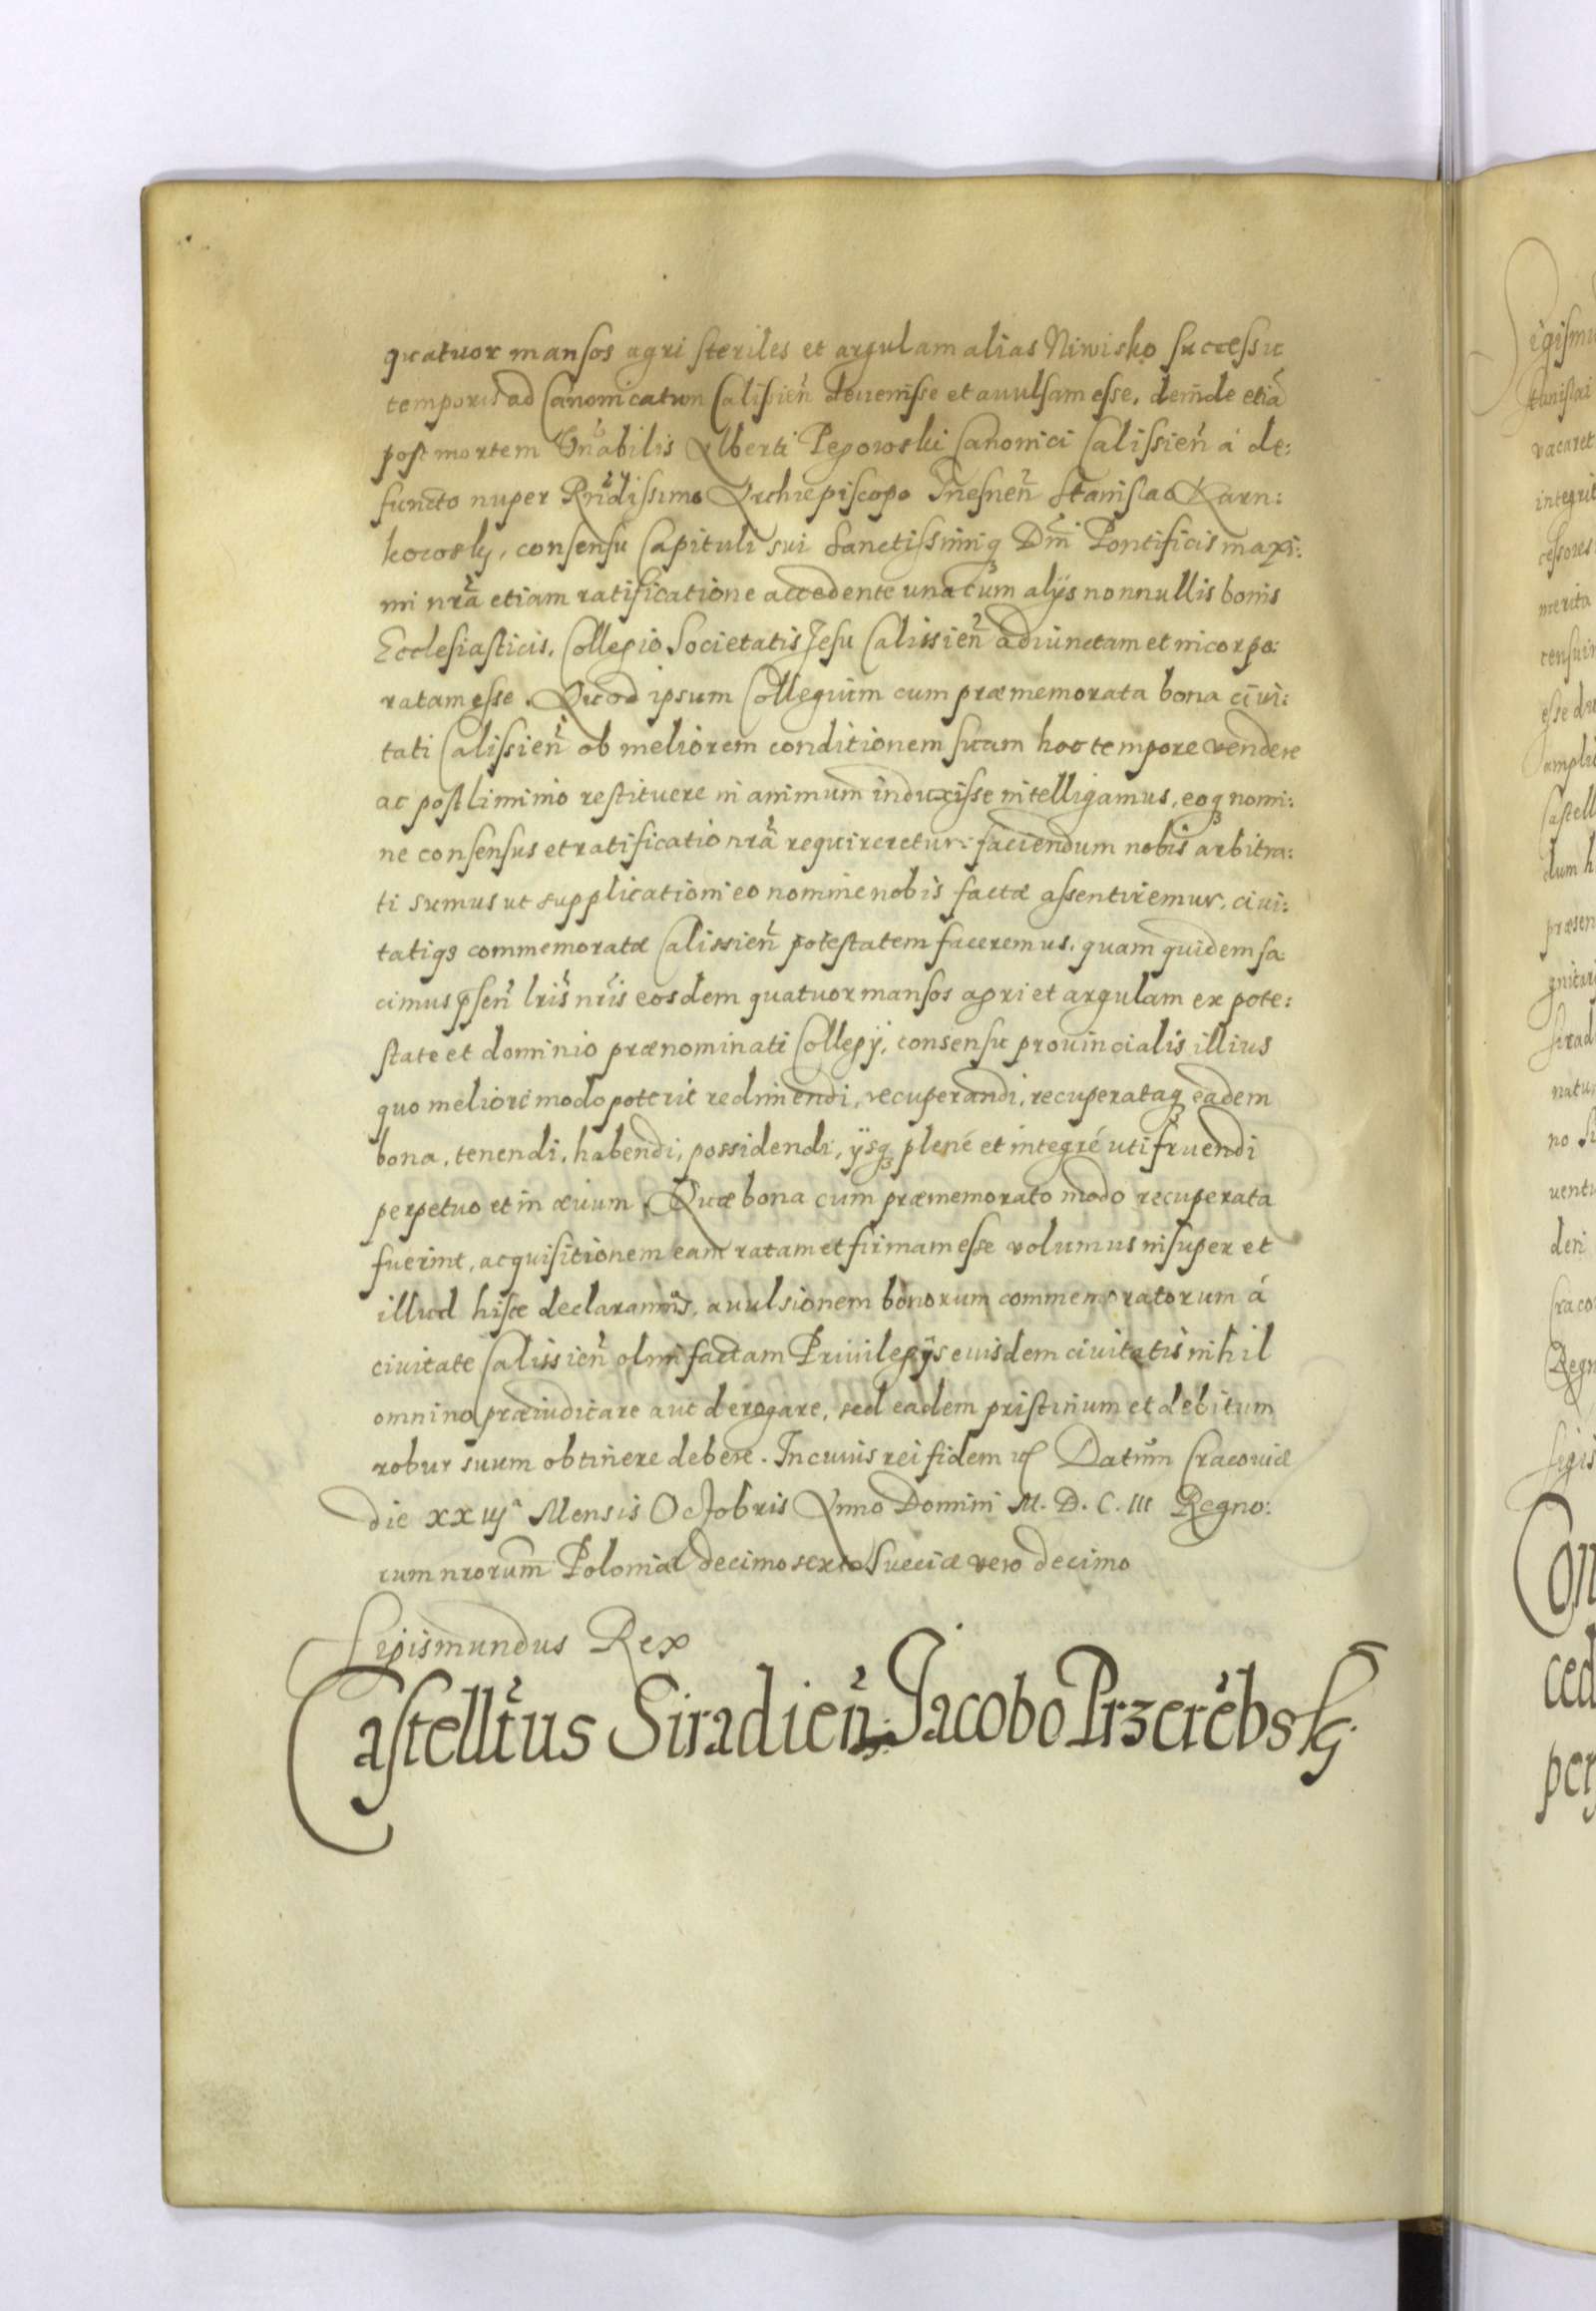 quatuor mansos agri steriles et argulam alias Niwisko successu
temporis ad Canonicatum Calissien̄ devenisse et avulsam esse, deinde etiā
post mortem Vn̄abilis Alberti Pegowski Canonici Calissien̄ á de:
functo nuper Rn̄dissimo Archiepiscopo Gnesnen̄ Stanislao Karn:
kowsky, consensu Capituli sui Sanctissimiqȝ Dm̄ Pontificis maxi:
mi nrā etiam ratificatione accedente una cum alÿs nonnullis bonis
Ecclesiasticis, Collegio Societatis Jesu Calissien̄ adiunctam et incorpo:
ratam esse. Quod ipsum Collegium cum præmemorata bona civi:
tati Calissien̄ ob meliorem conditionem suam hoc tempore vendere
ac postliminio restituere in animum induxisse intelligamus, eoqȝ nomi:
ne consensus et ratificatio nrā requireretur: faciendum nobis arbitra:
ti sumus ut supplicationi eo nomine nobis factæ assentiremur, civi:
tatiqȝ commemoratæ Calissien̄ potestatem faceremus, quam quidem fa:
cimus p̄sen̄ lris̄ nrīs eosdem quatuor mansos agri et argulam ex pote:
state et dominio prænominati Collegÿ, consensu provincialis illius
quo meliori modo poterit redimendi, recuperandi, recuperataqȝ eadem
bona, tenendi, habendi, possidendi, ÿsqȝ plené et integré uti fruendi
perpetuo et in ævum. Quæ bona cum præmemorato modo recuperata
fuerint, acquisitionem eam ratam et firmam esse volumus insuper et
illud hisce declaramus, avulsionem bonorum commemoratorum á
civitate Calissien̄ olim factam Privilegÿs euisdem civitatis nihil
omnino præiudicare aut derogare, sed eadem pristinum et debitum
robur suum obtinere debere. In cuius rei fidem Datum Cracoviæ
die XXIIIᵃ Mensis Octobris Anno Domini M. D. C. III Regno:
rum nrorum̄ Poloniæ decimo sexto Sueciæ vero decimo
Sigismundus Rex
Castelltūs Siradien̄. Jacobo Przerēbsky.